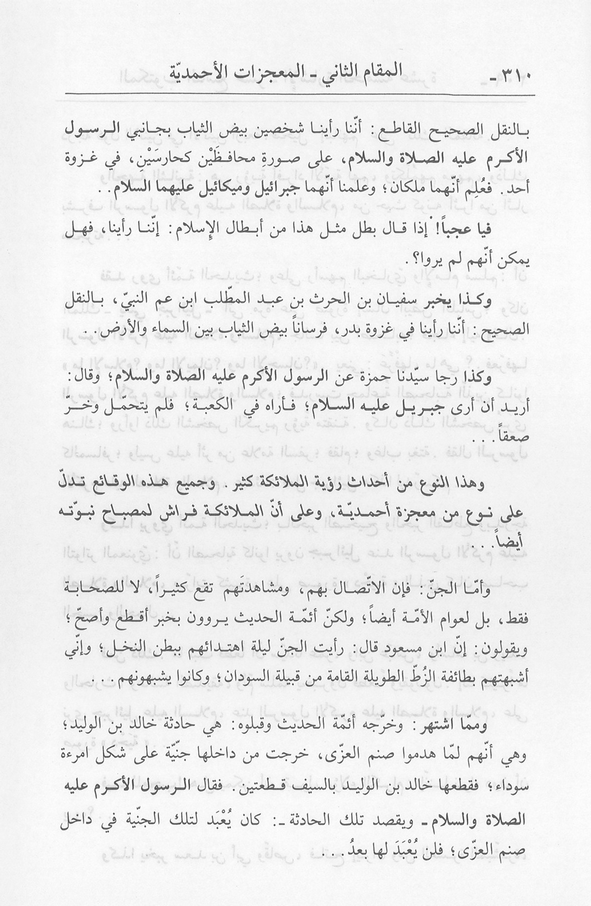 ٣١٠ ـ المقام الثاني ـ المعجزات الأحمديّة
بالنقل الصحيح القاطع: أنّنا رأينا شخصين بيض الثياب بجانبي الرسول
الأكرم عليه الصلاة والسلام، على صورةِ محافظَيْن كحارسَيْن، في غزوة
أحد. فعُلِم أنّهما ملكان؛ وعلمنا أنّهما جبرائيل وميكائيل عليهما السلام..
فيا عجباً! إذا قال بطل مثل هذا من أبطال الإسلام: إنّنا رأينا، فهل
يمكن أنّهم لم يروا؟.
وكذا يخبر سفيان بن الحرث بن عبد المطّلب ابن عم النبيّ، بالنقل
الصحيح: أنّنا رأينا في غزوة بدر، فرساناً بيض الثياب بين السماء والأرض..
وكذا رجا سيّدنا حمزة عن الرسول الأكرم عليه الصلاة والسلام؛ وقال:
أريد أن أرى جبريل عليه السلام؛ فأراه في الكعبة؛ فلم يتحمّل وخرّ
صعقاً...
وهذا النوع من أحداث رؤية الملائكة كثير. وجميع هذه الوقائع تدلّ
على نوع من معجزة أحمديّة، وعلى أنّ الملائكة فراش لمصباح نبوّته
أيضاً...
وأمّا الجنّ: فإن الاتّصال بهم، ومشاهدتَهم تقع كثيراً، لا للصحابة
فقط، بل لعوام الأمّة أيضاً؛ ولكنّ أئمّة الحديث يروون بخبر أقطع وأصحّ؛
ويقولون: إنّ ابن مسعود قال: رأيت الجنّ ليلة اهتدائهم ببطن النخل؛ وإنّي
أشبهتهم بطائفة الزُطّ الطويلة القامة من قبيلة السودان؛ وكانوا يشبهونهم...
وممّا اشتهر: وخرّجه أئمّة الحديث وقبلوه: هي حادثة خالد بن الوليد؛
وهي أنّهم لمّا هدموا صنم العزّى، خرجت من داخلها جنّية على شكل امرءة
سوداء؛ فقطعها خالد بن الوليد بالسيف قطعتين. فقال الرسول الأكرم عليه
الصلاة والسلام ـ ويقصد تلك الحادثة ـ: كان يُعْبَد لتلك الجنّية في داخل
صنم العزّى؛ فلن يُعْبَدَ لها بعدُ...